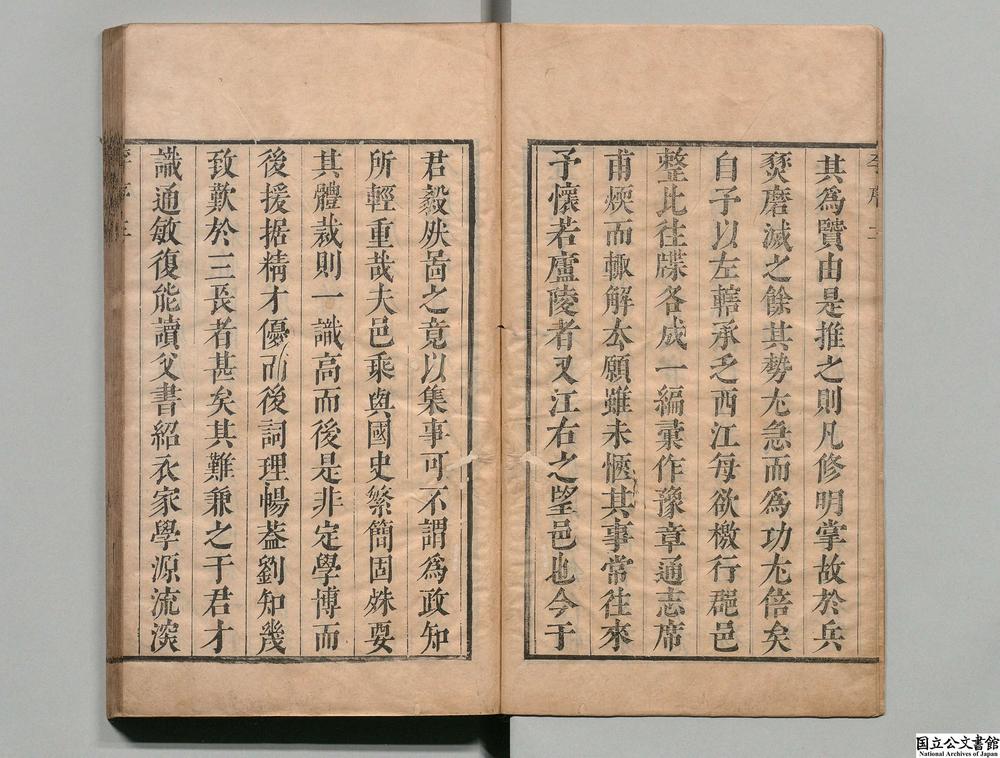 其爲贒由是推之則凡修明掌故於兵
燹磨滅之餘其勢尢急而爲功尢倍矣
自予以左轄承乏西江每欲檄行郡邑
整比往牒各成一編彚作豫章通志席
甫煖而輙解厺願雖未愜其事常往來
予懷若廬陵者又江右之望邑也今于
君毅然啚之竟以集事可不謂爲政知
所輕重哉夫邑乘與國史繁簡固姝要
其體裁則一識高而後是非定學博而
後援据精才優而後詞理暢葢劉知幾
致歎於三長者甚矣其難兼之于君才
識通敏復能讀父書紹衣家學源流深
国立公文書館
National Archives of Japan